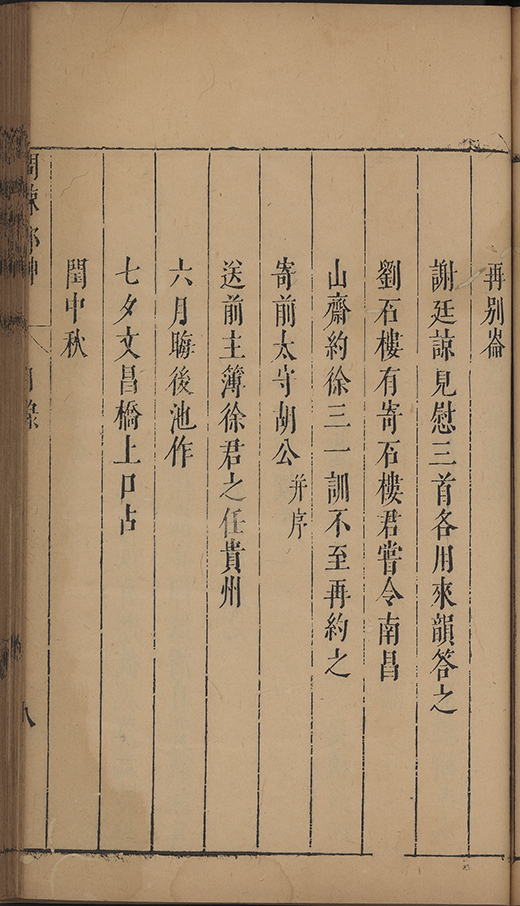 再別崙
謝廷諒見慰三首各用來韻答之
劉石樓有寄石樓君嘗令南昌
山齋約徐三一訓不至再約之
寄前太守胡公并序
送前主簿徐君之任貴州
六月晦後池作
七夕文昌橋上口占
閏中秋
目錄
八